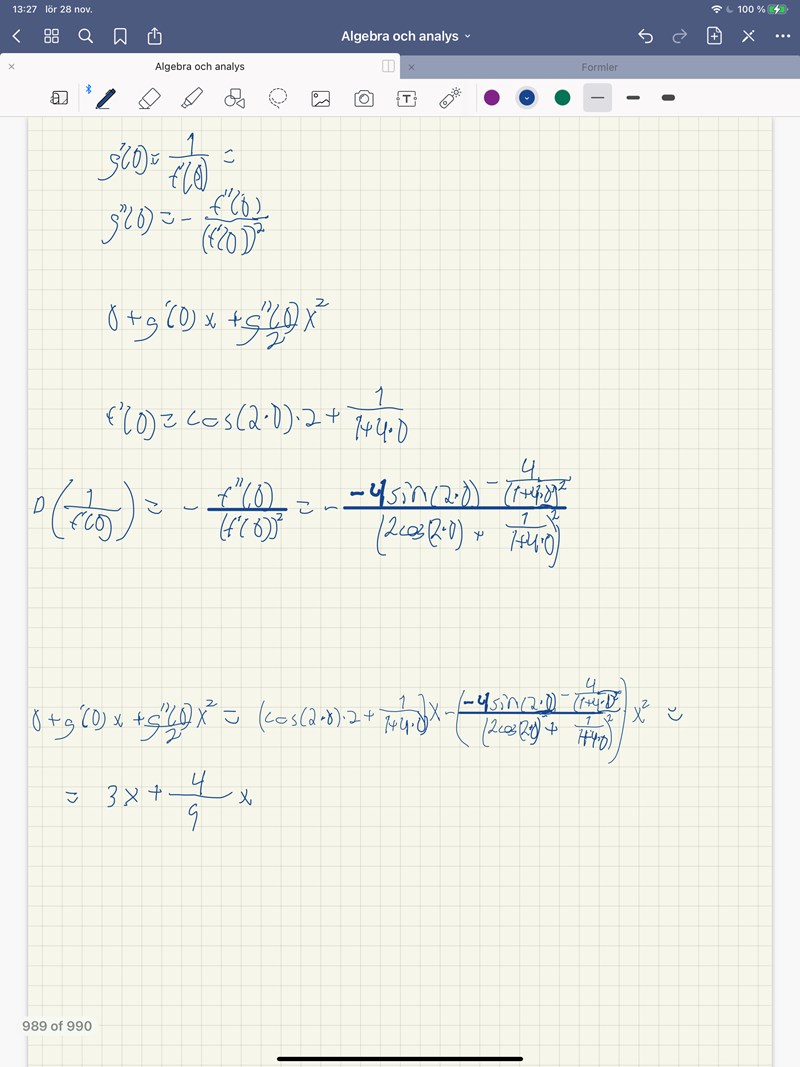 13:27 lör 28 nov. 100 %
Algebra och analys
Algebra och analys Formler
g'(0) = 1/f'(0) =
g''(0) = - f''(0)/(f'(0))²
0 + g'(0)x + g''(0)/2 x²
f'(0) = cos(2·0)·2 + 1/(1+4·0)
D(1/f'(0)) = - f''(0)/(f'(0))² = - (-4sin(2·0) - 4/(1+4·0)²)/(2cos(2·0) + 1/(1+4·0))²
0 + g'(0)x + g''(0)/2 x² = (cos(2·0)·2 + 1/(1+4·0))x - ((-4sin(2·0) - 4/(1+4·0)²)/(2cos(2·0) + 1/(1+4·0))²) x² =
= 3x + 4/9 x
989 of 990